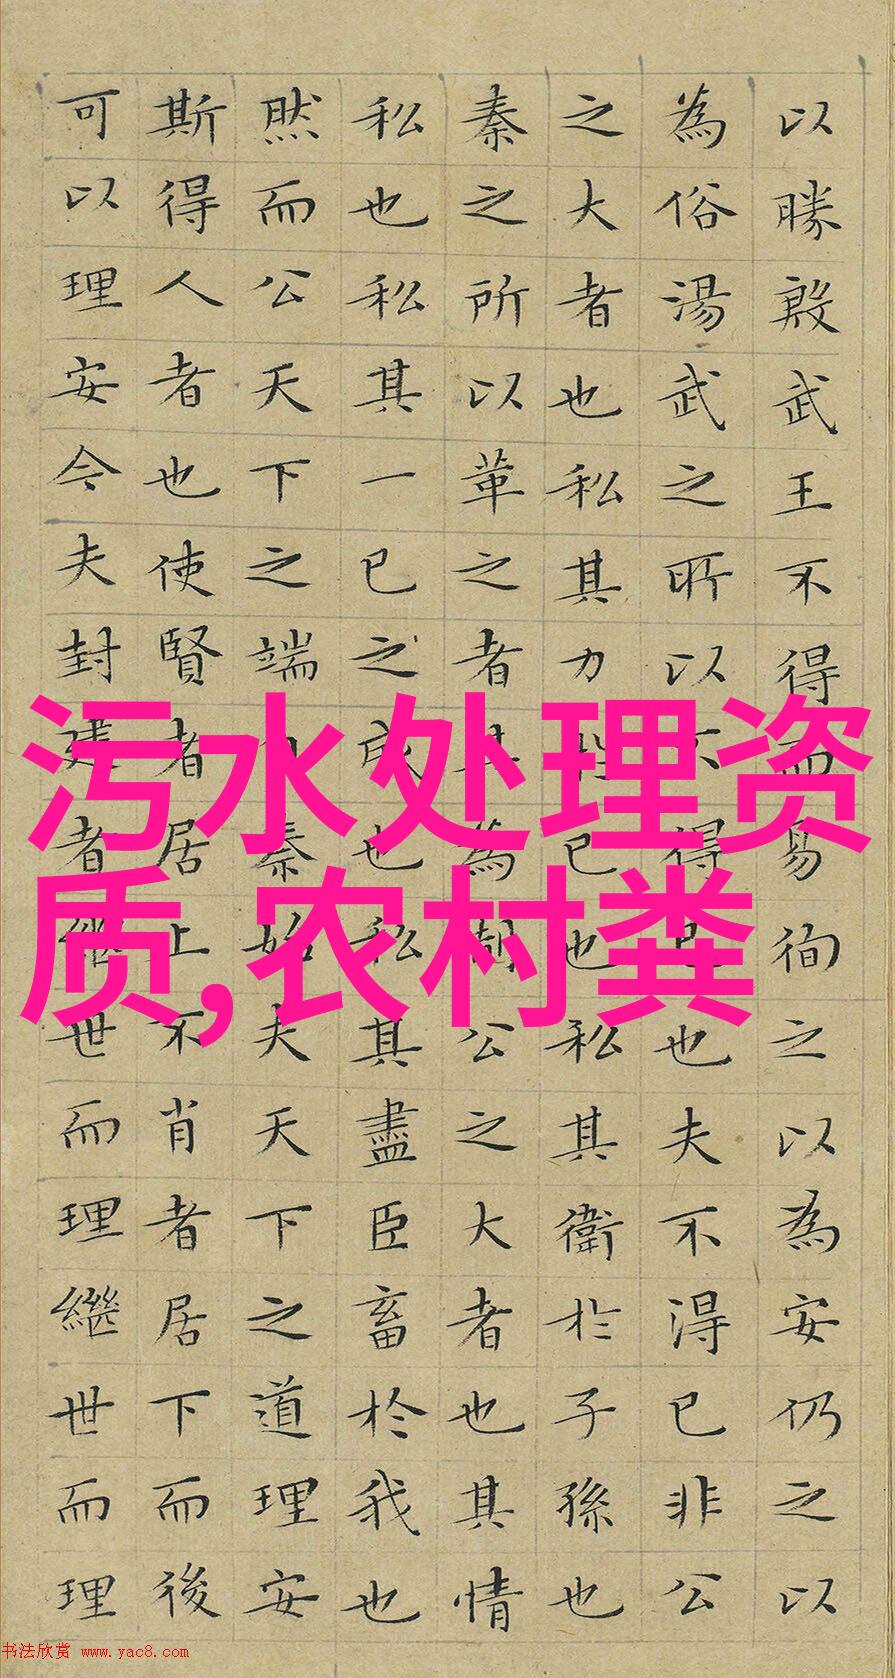 以勝殷武王不得而易徇之以為安仍之以
為俗湯武之所以不得已也夫不得已非公
之大者也私其力於已也私其衛於子孫也
秦之所以革之者其為制公之大者也其情
私也私其一已之威也私其盡臣畜於我也
然而公天下之端自秦始夫天下之道理安
斯得人者也使賢者居上不肖者居下而後
可以理安今夫封建者繼世而理繼世而理
污水处理资
质,农村粪
书法欣赏 www.yac8.com